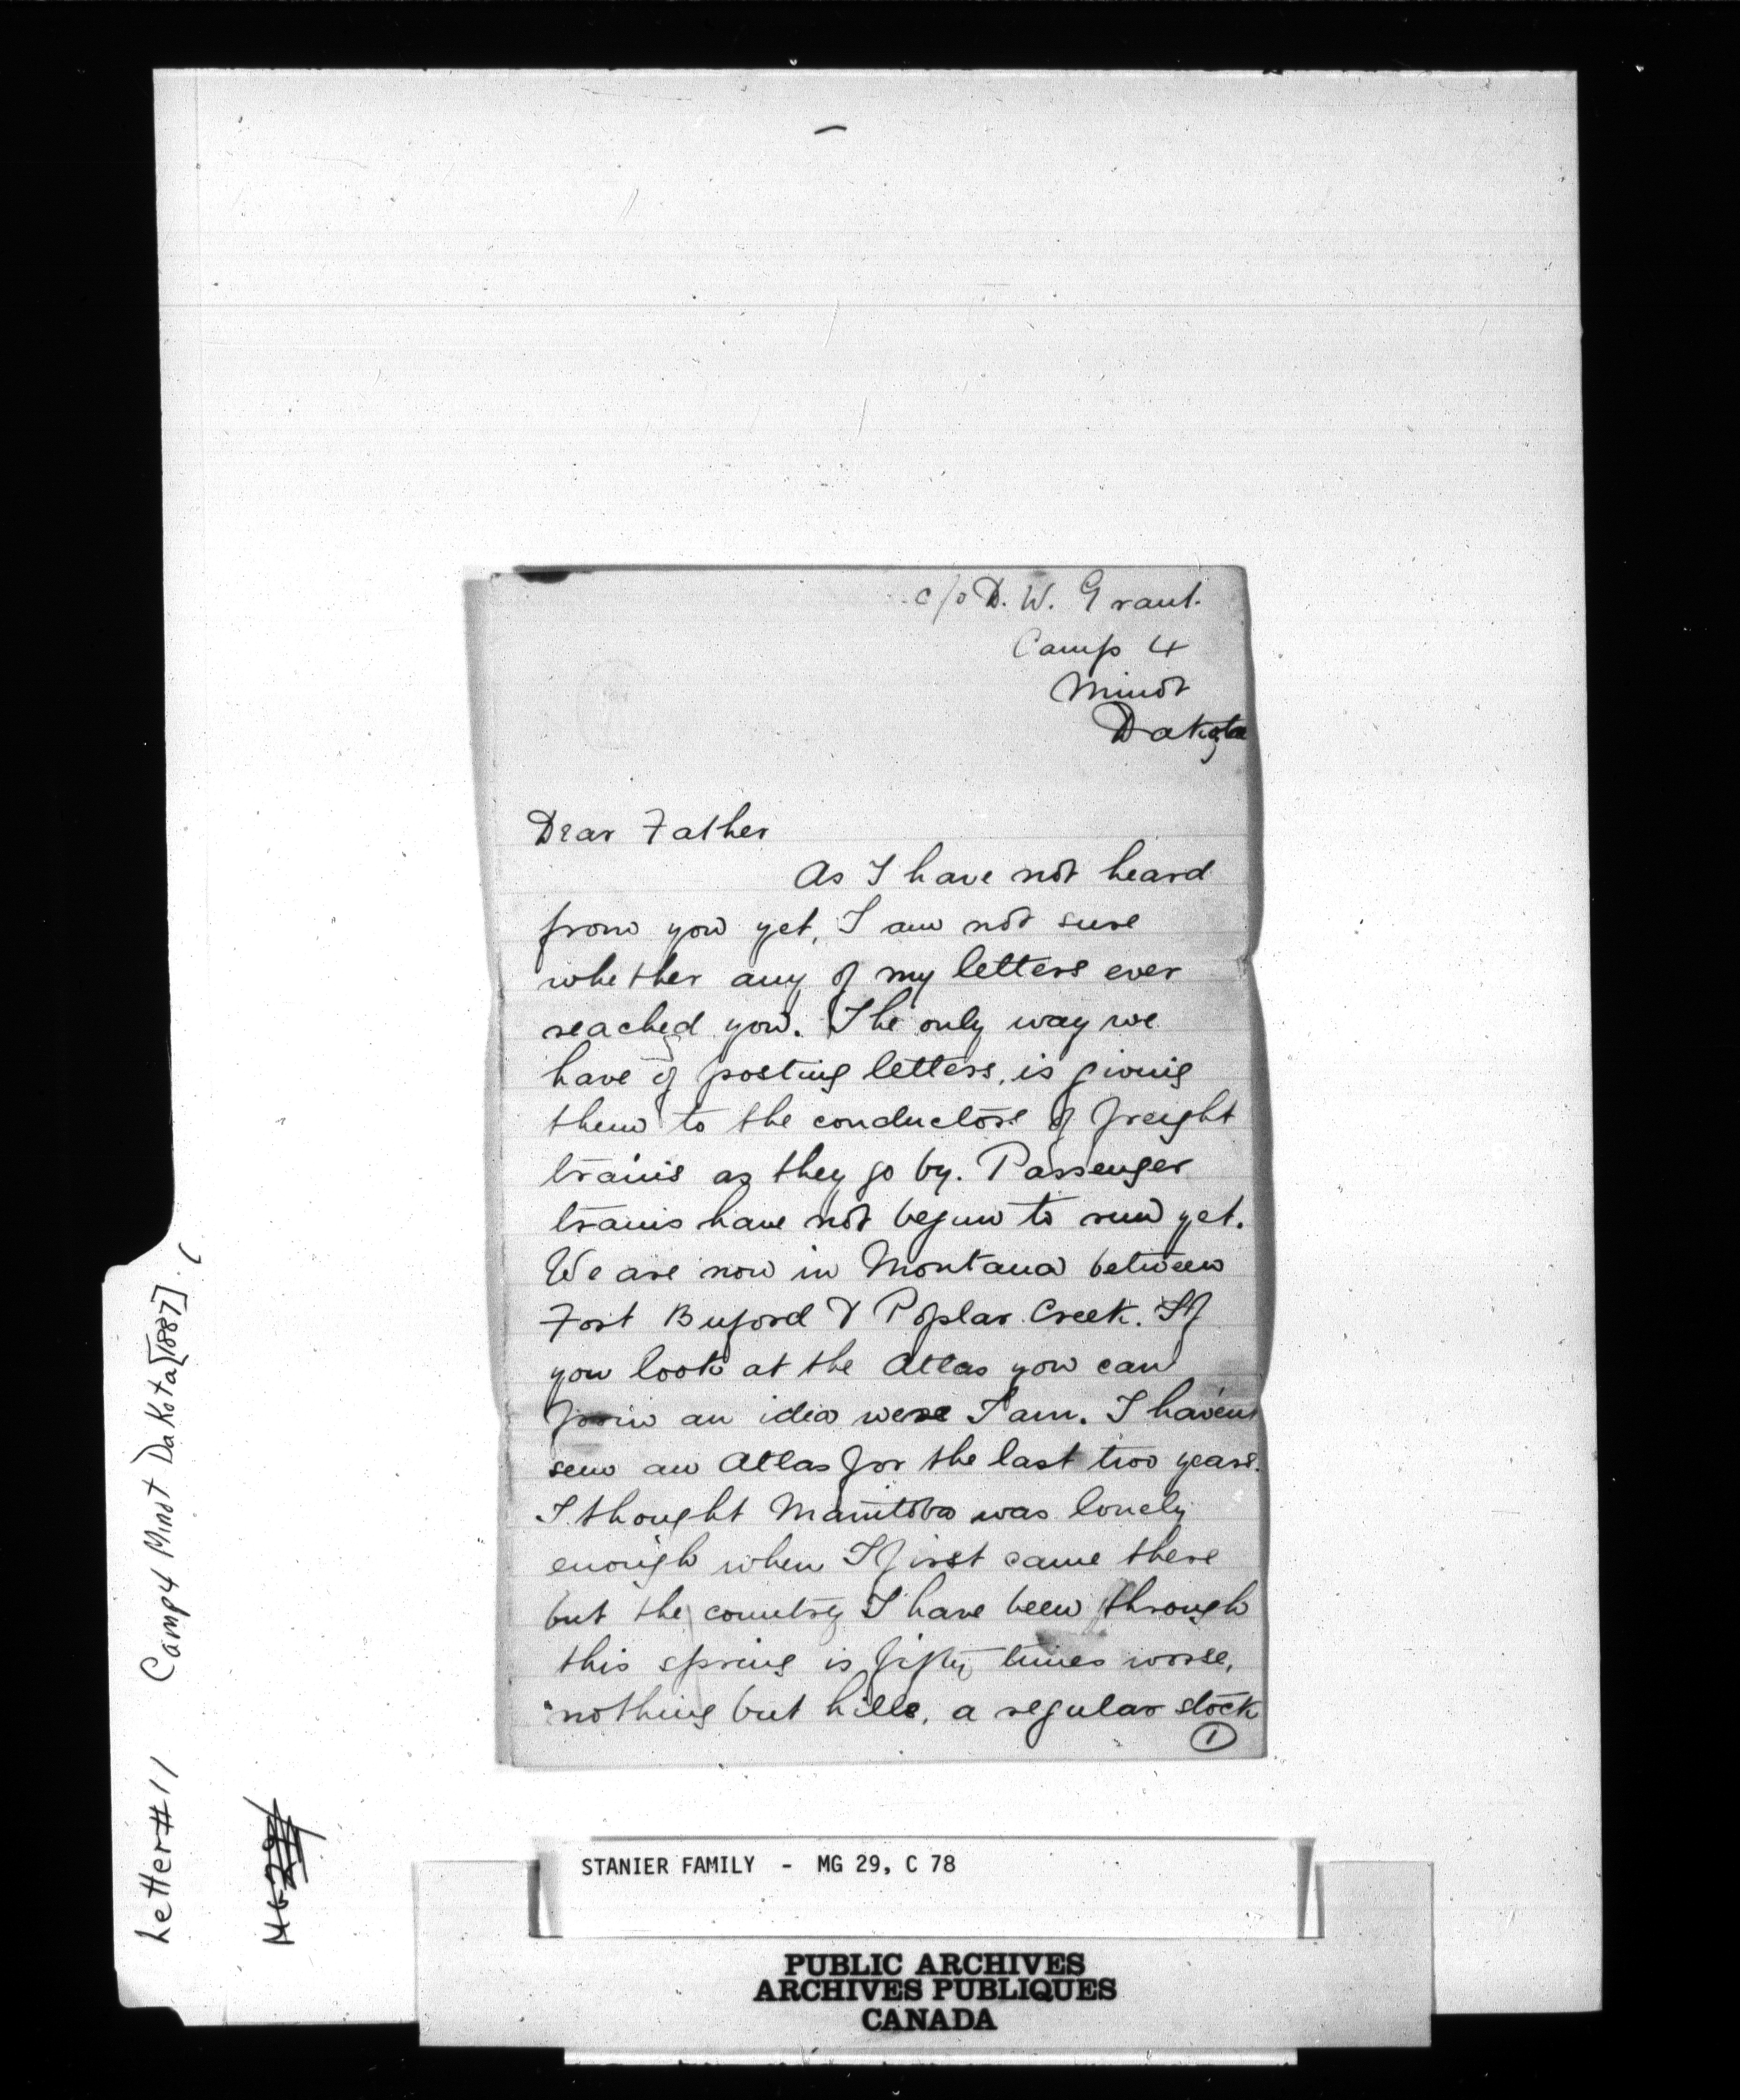 c/o D. W. Grant.
Camp 4
Minot
Dakota
Dear Father
As I have not heard
from you yet, I am not sure
whether any of my letters ever
reached you. The only way we
have of posting letters, is giving
them to the conductors of freight
trains as they go by. Passenger
trains have not begun to run yet.
We are now in Montana between
Fort Buford & Poplar Creek. If
you look at the Atlas you can
form an idea were I am. I haven't
seen an Atlas for the last two years.
I thought Manitoba was lonely
enough when I first came there
but the country I have been through
this spring is fifty times worse,
nothing but hills, a regular stock
1
Letter #11 Camp 4 Minot Dakota [1887].
MG 29
STANIER FAMILY - MG 29, C 78
PUBLIC ARCHIVES
ARCHIVES PUBLIQUES
CANADA